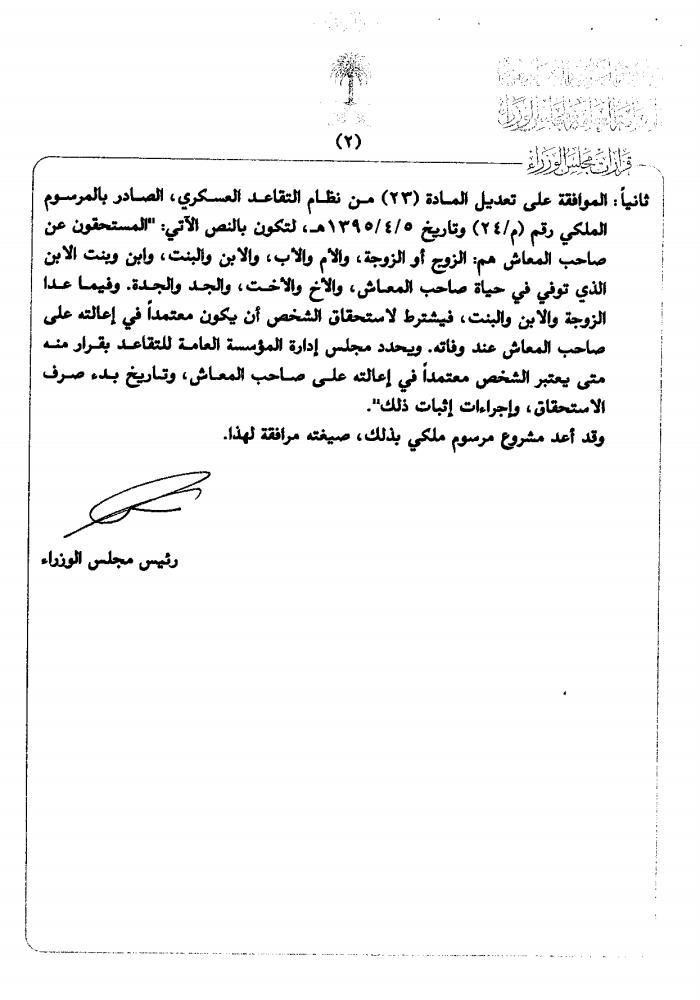 (٢)
قرارات مجلس الوزراء
ثانياً: الموافقة على تعديل المادة (٢٣) من نظام التقاعد العسكري، الصادر بالمرسوم
الملكي رقم (م/٢٤) وتاريخ ١٣٩٥/٤/٥هـ، لتكون بالنص الآتي: "المستحقون عن
صاحب المعاش هم: الزوج أو الزوجة، والأم والأب، والابن والبنت، وابن وبنت الابن
الذي توفي في حياة صاحب المعاش، والأخ والأخت، والجد والجدة. وفيما عدا
الزوجة والابن والبنت، فيشترط لاستحقاق الشخص أن يكون معتمداً في إعالته على
صاحب المعاش عند وفاته. ويحدد مجلس إدارة المؤسسة العامة للتقاعد بقرار منه
متى يعتبر الشخص معتمداً في إعالته على صاحب المعاش، وتاريخ بدء صرف
الاستحقاق، وإجراءات إثبات ذلك".
وقد أعد مشروع مرسوم ملكي بذلك، صيغته مرافقة لهذا.
رئيس مجلس الوزراء